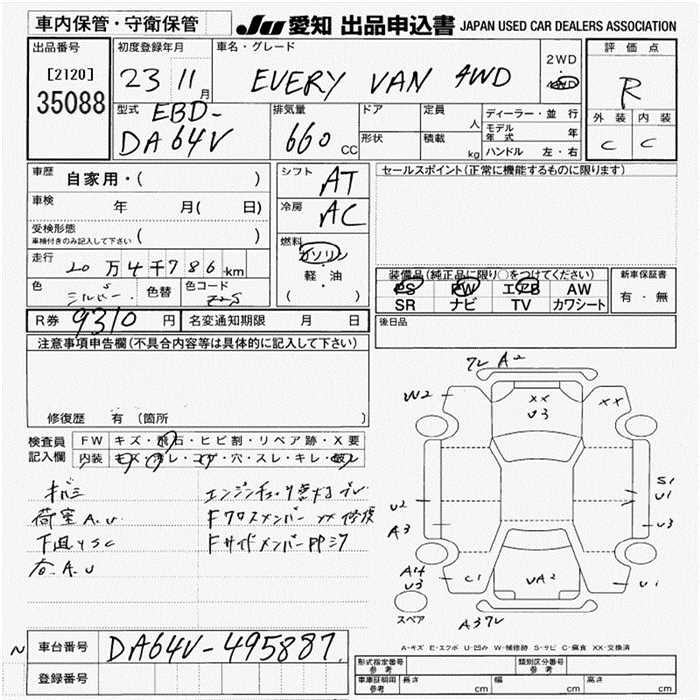 車内保管・守衛保管
JU 愛知 出品申込書 JAPAN USED CAR DEALERS ASSOCIATION
出品番号
[2120]
35088
初度登録年月
23 11月
車名・グレード
EVERY VAN 4WD
2WD
4WD
評価点
R
外装 内装
C C
型式
EBD-
DA64V
排気量
660 CC
ドア
形状
定員 人
積載 kg
ディーラー・並行
モデル年式 年
ハンドル 左・右
車歴 自家用・( )
車検 年 月( 日)
受検形態
車検付きのみ記入して下さい ( )
走行 20万4千786km
色 シルバー
色替
色コード Z2S
シフト AT
冷房 AC
燃料
ガソリン
・
軽・油
( )
セールスポイント(正常に機能するものに限ります)
装備品(純正品に限り○をつけてください)
PS PW エアB AW
SR ナビ TV カワシート
新車保証書
有・無
R券 9310 円
名変通知期限 月 日
後日品
注意事項申告欄(不具合内容等は具体的に記入して下さい)
修復歴 有 (箇所 )
検査員
記入欄
FW キズ・飛石・ヒビ割・リペア跡・X要
内装 キズ・汚レ・コゲ・穴・スレ・キレ・破レ
キバミ
荷室A.U
下廻りSC
右.A.U
エンジンチェック点灯
Fクロスメンバー XX 修復
Fサイドメンバー
フレ A2
W2
XX
U3
XX
U2
A3
S1
U1
U3
A14
U3
C1
UA2
U1
スペア
A3
A-キズ E-エクボ U-凹み W-補修跡 S-サビ C-腐食 XX-交換済
車台番号 DA64V-495887
登録番号
形式指定番号
参考
類別区分番号
参考
車庫証明用
参考
長さ cm
幅 cm
高さ cm